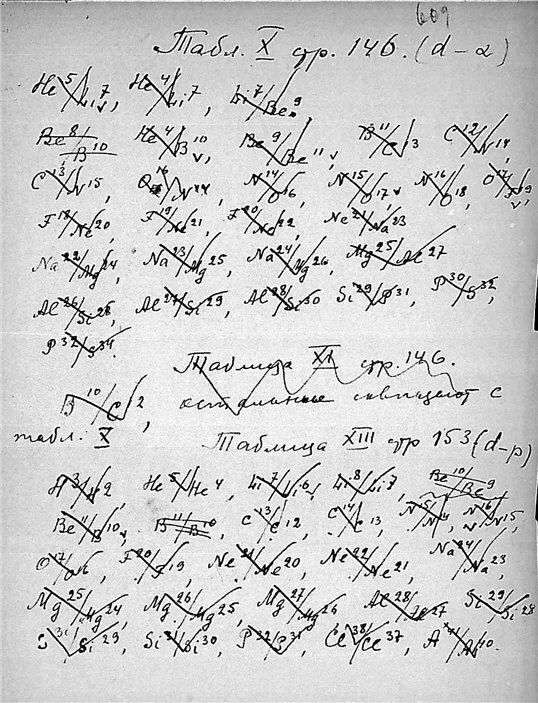 609
Табл. X стр. 146. (d-α)
He⁵/Li⁷, He⁴/Li⁷, Li⁷/Be⁹
Be⁸/B¹⁰ He⁴/B¹⁰, Be⁹/Be¹¹, B¹¹/C¹³ C¹²/N¹⁴,
C¹³/N¹⁵, O¹⁶/N¹⁴, N¹⁴/O¹⁶, N¹⁵/O¹⁷, N¹⁶/O¹⁸, O¹⁷/F¹⁹,
F¹⁸/Ne²⁰, F¹⁹/Ne²¹, F²⁰/Ne²², Ne²¹/Na²³
Na²²/Mg²⁴, Na²³/Mg²⁵, Na²⁴/Mg²⁶, Mg²⁵/Al²⁷
Al²⁶/Si²⁸, Al²⁷/Si²⁹, Al²⁸/Si³⁰ Si²⁹/P³¹, P³⁰/S³²,
P³²/S³⁴.
Таблица XI стр. 146.
B¹⁰/C¹², остальные совпадают с
табл. X
Таблица XIII стр 153 (d-p)
H³/H², He⁵/He⁴, Li⁷/Li⁶, Li⁸/Li⁷, Be¹⁰/Be⁹
Be¹¹/B¹⁰, B¹¹/B¹⁰, C¹³/C¹², C¹⁴/C¹³, N¹⁵/N¹⁴, N¹⁶/N¹⁵,
O¹⁷/O¹⁶, F²⁰/F¹⁹, Ne²¹/Ne²⁰, Ne²²/Ne²¹, Na²⁴/Na²³,
Mg²⁵/Mg²⁴, Mg²⁶/Mg²⁵, Mg²⁷/Mg²⁶ Al²⁸/Al²⁷ Si²⁹/Si²⁸
Si²⁹, Si³¹/Si³⁰, P³²/P³¹, Cl³⁸/Cl³⁷, A⁴¹/A⁴⁰.